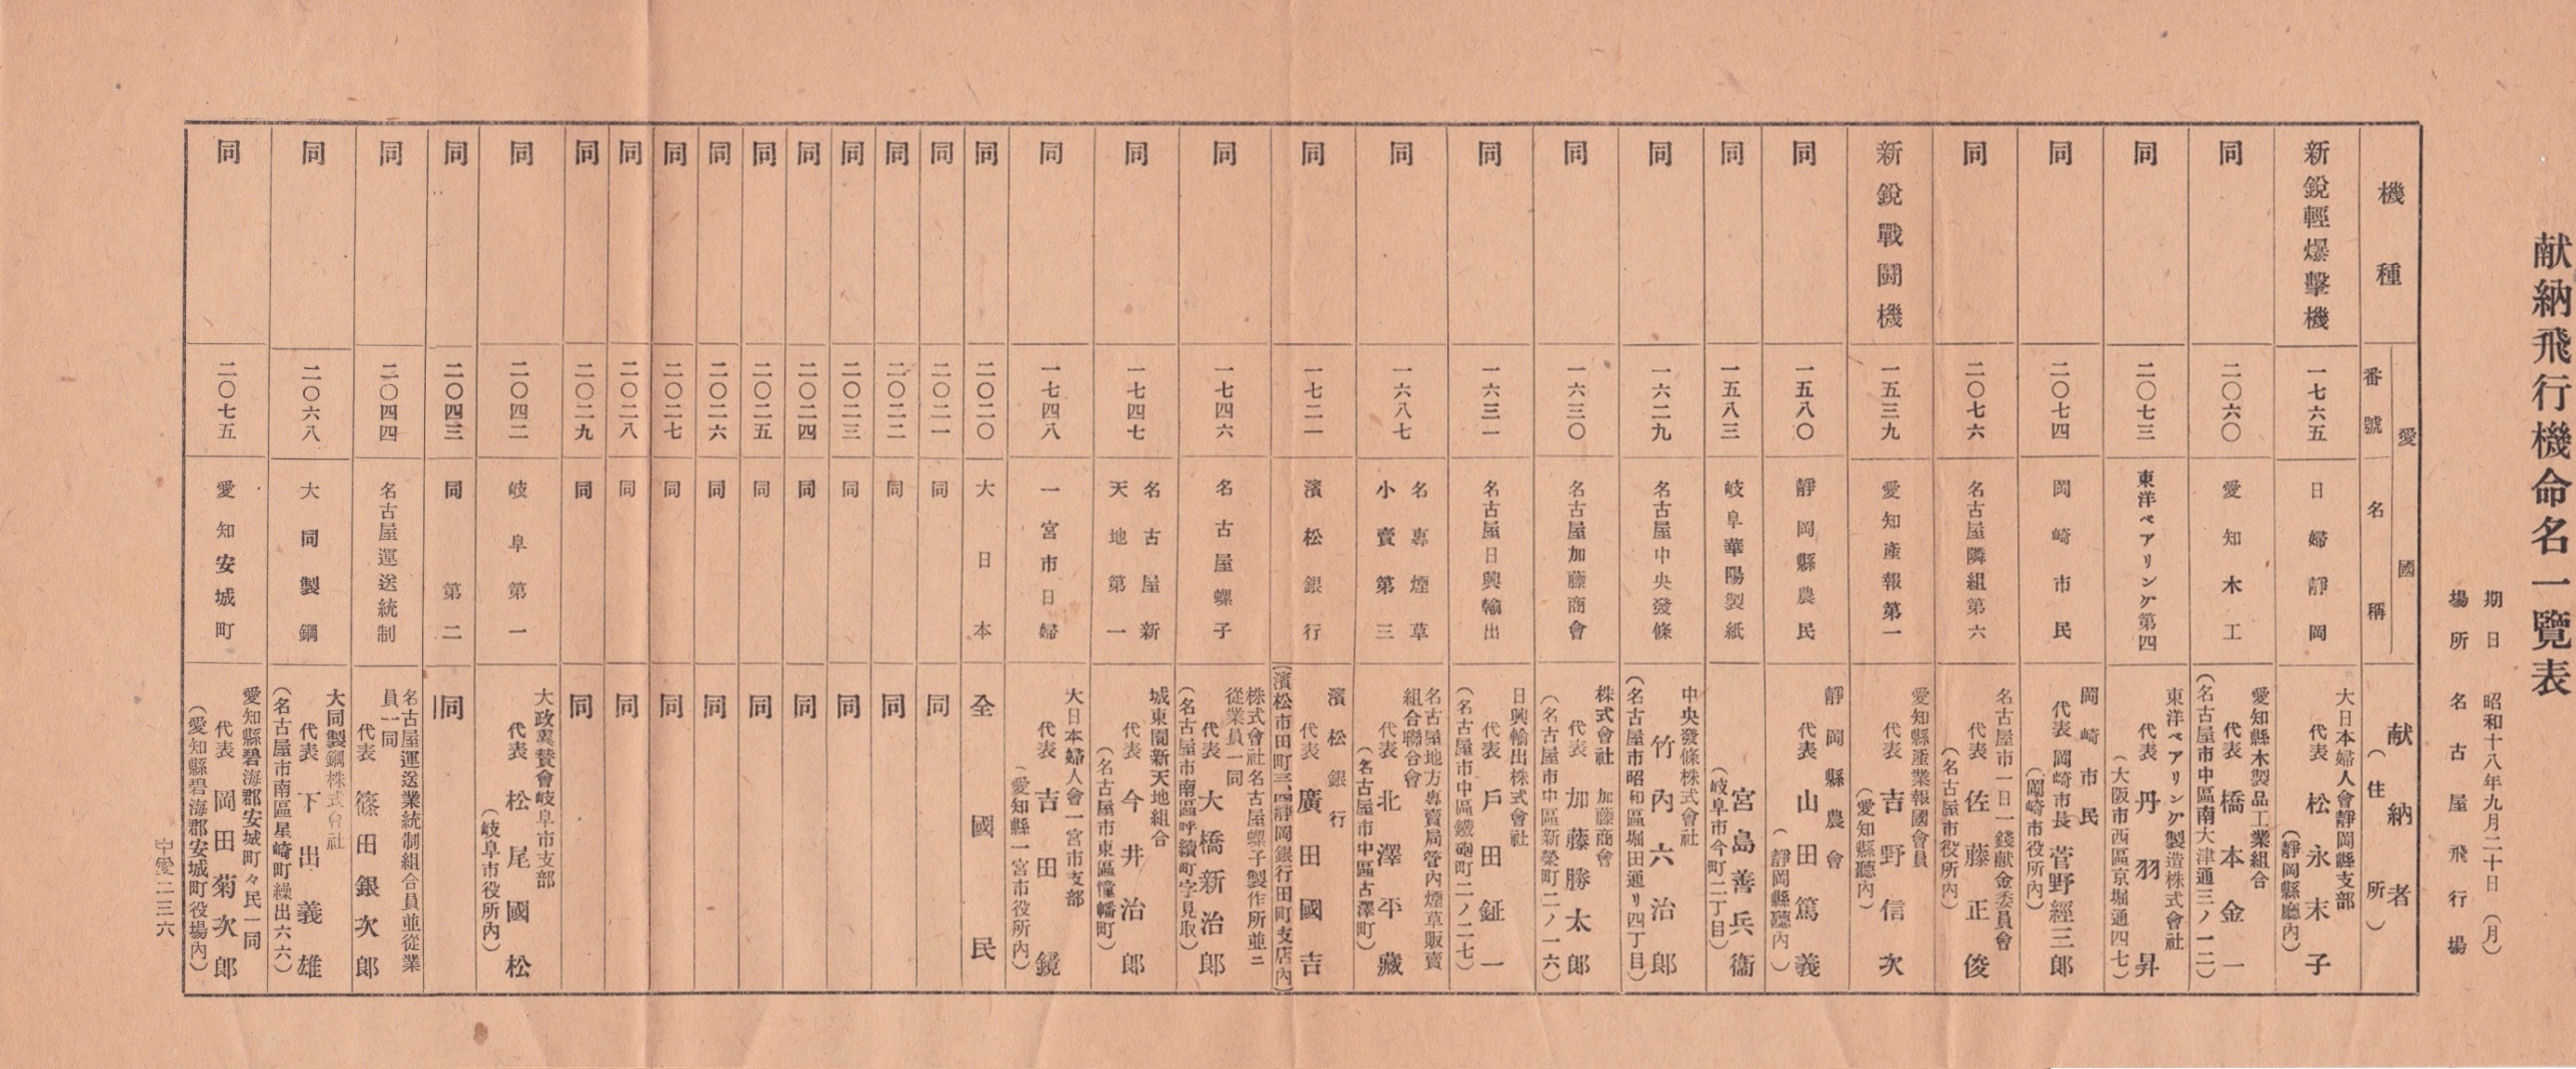 献納飛行機命名一覽表
期日 昭和十八年九月二十日（月）
場所 名古屋飛行場
機種 愛國 番號 名稱 献納者（住所）
新銳輕爆擊機 一七六五 日婦靜岡 大日本婦人會靜岡縣支部 代表 松永末子 （靜岡縣廳內）
同 二〇六〇 愛知木工 愛知縣木製品工業組合 代表 橋本金一 （名古屋市中區南大津通三ノ一二）
同 二〇七三 東洋ベアリング第四 東洋ベアリング製造株式會社 代表 丹羽昇 （大阪市西區京堀通四七）
同 二〇七四 岡崎市民 岡崎市民 代表 岡崎市長 菅野經三郎 （岡崎市役所內）
同 二〇七六 名古屋隣組第六 名古屋市一日一錢献金委員會 代表 佐藤正俊 （名古屋市役所內）
新銳戰鬪機 一五三九 愛知產報第一 愛知縣產業報國會員 代表 吉野信次 （愛知縣廳內）
同 一五八〇 靜岡縣農民 靜岡縣農會 代表 山田篤義 （靜岡縣廳內）
同 一五八三 岐阜華陽製紙 宮島善兵衞 （岐阜市今町二丁目）
同 一六二九 名古屋中央發條 中央發條株式會社 竹內六治郎 （名古屋市昭和區堀田通リ四丁目）
同 一六三〇 名古屋加藤商會 株式會社 加藤商會 代表 加藤勝太郎 （名古屋市中區新榮町二ノ一六）
同 一六三一 名古屋日興輸出 日興輸出株式會社 代表 戶田鉦一 （名古屋市中區鐵砲町二ノ二七）
同 一六八七 名專煙草小賣第三 名古屋地方專賣局管內煙草販賣組合聯合會 代表 北澤平藏 （名古屋市中區古澤町）
同 一七二一 濱松銀行 濱松銀行 代表 廣田國吉 （濱松市田町三四靜岡銀行田町支店內）
同 一七四六 名古屋螺子 株式會社名古屋螺子製作所並ニ從業員一同 代表 大橋新治郎 （名古屋市南區呼續町字見取）
同 一七四七 名古屋新天地第一 城東園新天地組合 代表 今井治郎 （名古屋市東區幢幡町）
同 一七四八 一宮市日婦 大日本婦人會一宮市支部 代表 吉田鏡 （愛知縣一宮市役所內）
同 二〇二〇 大日本 全國民
同 二〇二一 同 同
同 二〇二二 同 同
同 二〇二三 同 同
同 二〇二四 同 同
同 二〇二五 同 同
同 二〇二六 同 同
同 二〇二七 同 同
同 二〇二八 同 同
同 二〇二九 同 同
同 二〇四二 岐阜第一 大政翼贊會岐阜市支部 代表 松尾國松 （岐阜市役所內）
同 二〇四三 同第二 同
同 二〇四四 名古屋運送統制 名古屋運送業統制組合員並從業員一同 代表 篠田銀次郎
同 二〇六八 大同製鋼 大同製鋼株式會社 代表 下出義雄 （名古屋市南區星崎町繰出六六）
同 二〇七五 愛知安城町 愛知縣碧海郡安城町々民一同 代表 岡田菊次郎 （愛知縣碧海郡安城町役場內）
中愛二三六